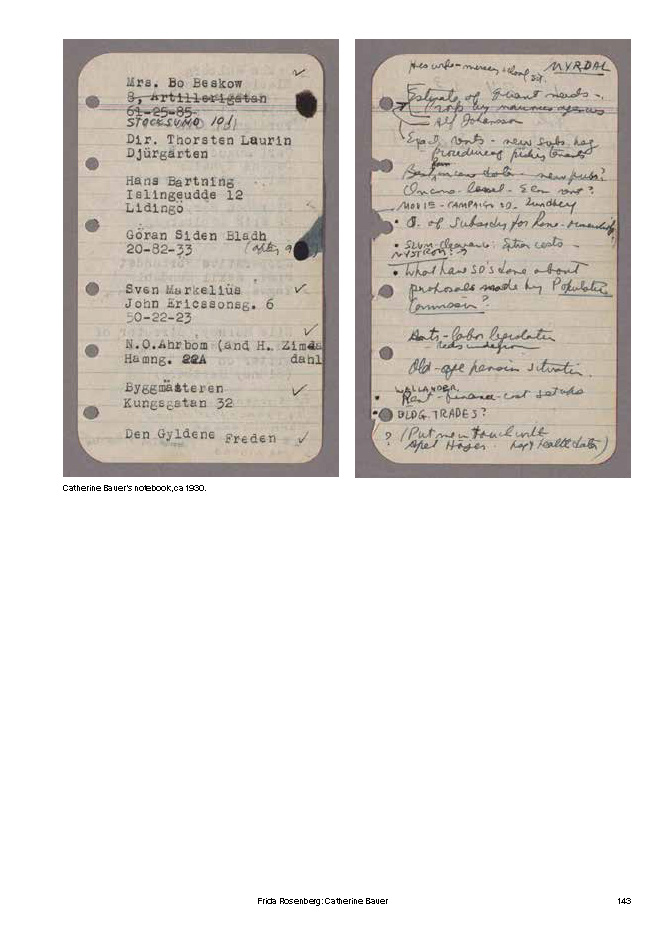 Mrs. Bo Beskow
8, Artillerigatan
61-25-85
STOCKSUND 10/1
Dir. Thorsten Laurin
Djurgården
Hans Bartning
Islingeudde 12
Lidingo
Goran Siden Bladh
20-82-33
Sven Markelius
John Ericssonsg. 6
50-22-23
N.O.Ahrbom (and H. Zimdahl
Hamng. 22A
Byggmästeren
Kungsgatan 32
Den Gyldene Freden
His wife - nursery school sit.
MYRDAL
Estimate of Quant needs -
Alf Johansson
rents - new subs. hsg
Income-level -
MOVIE - CAMPAIGN SD - Lundberg
• Q. of Subsidy for home-ownership?
• SLUM-clearance: costs -
NYSTROM?
• What have SD's done about
proposals made by Population
Commission?
Anti-labor legislation
Old-age pension situation.
WALLANDER.
• Rent-finance-cost setups
• BLDG. TRADES?
? (Put me in touch with
Axel Höjer. health)
Catherine Bauer's notebook, ca 1930.
Frida Rosenberg: Catherine Bauer
143